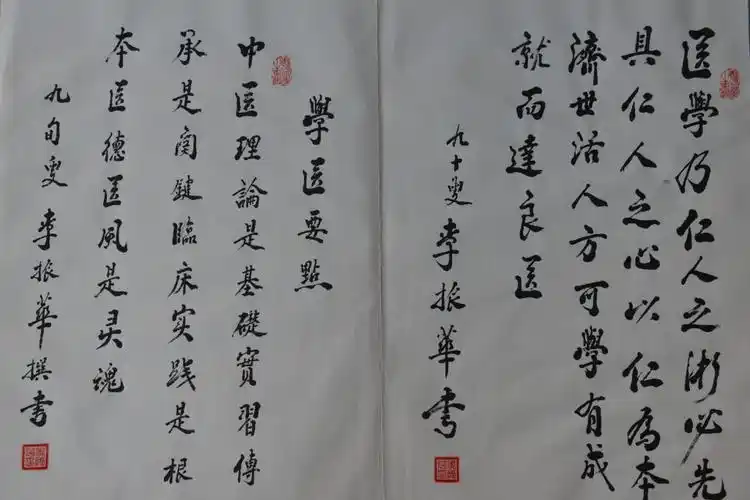 医學乃仁人之術必先
具仁人之心以仁為本
濟世活人方可學有成
就而達良医
九十叟李振華書
學医要點
中医理論是基礎實習傳
承是関鍵臨床实践是根
本医德医風是灵魂
九旬叟李振華撰書